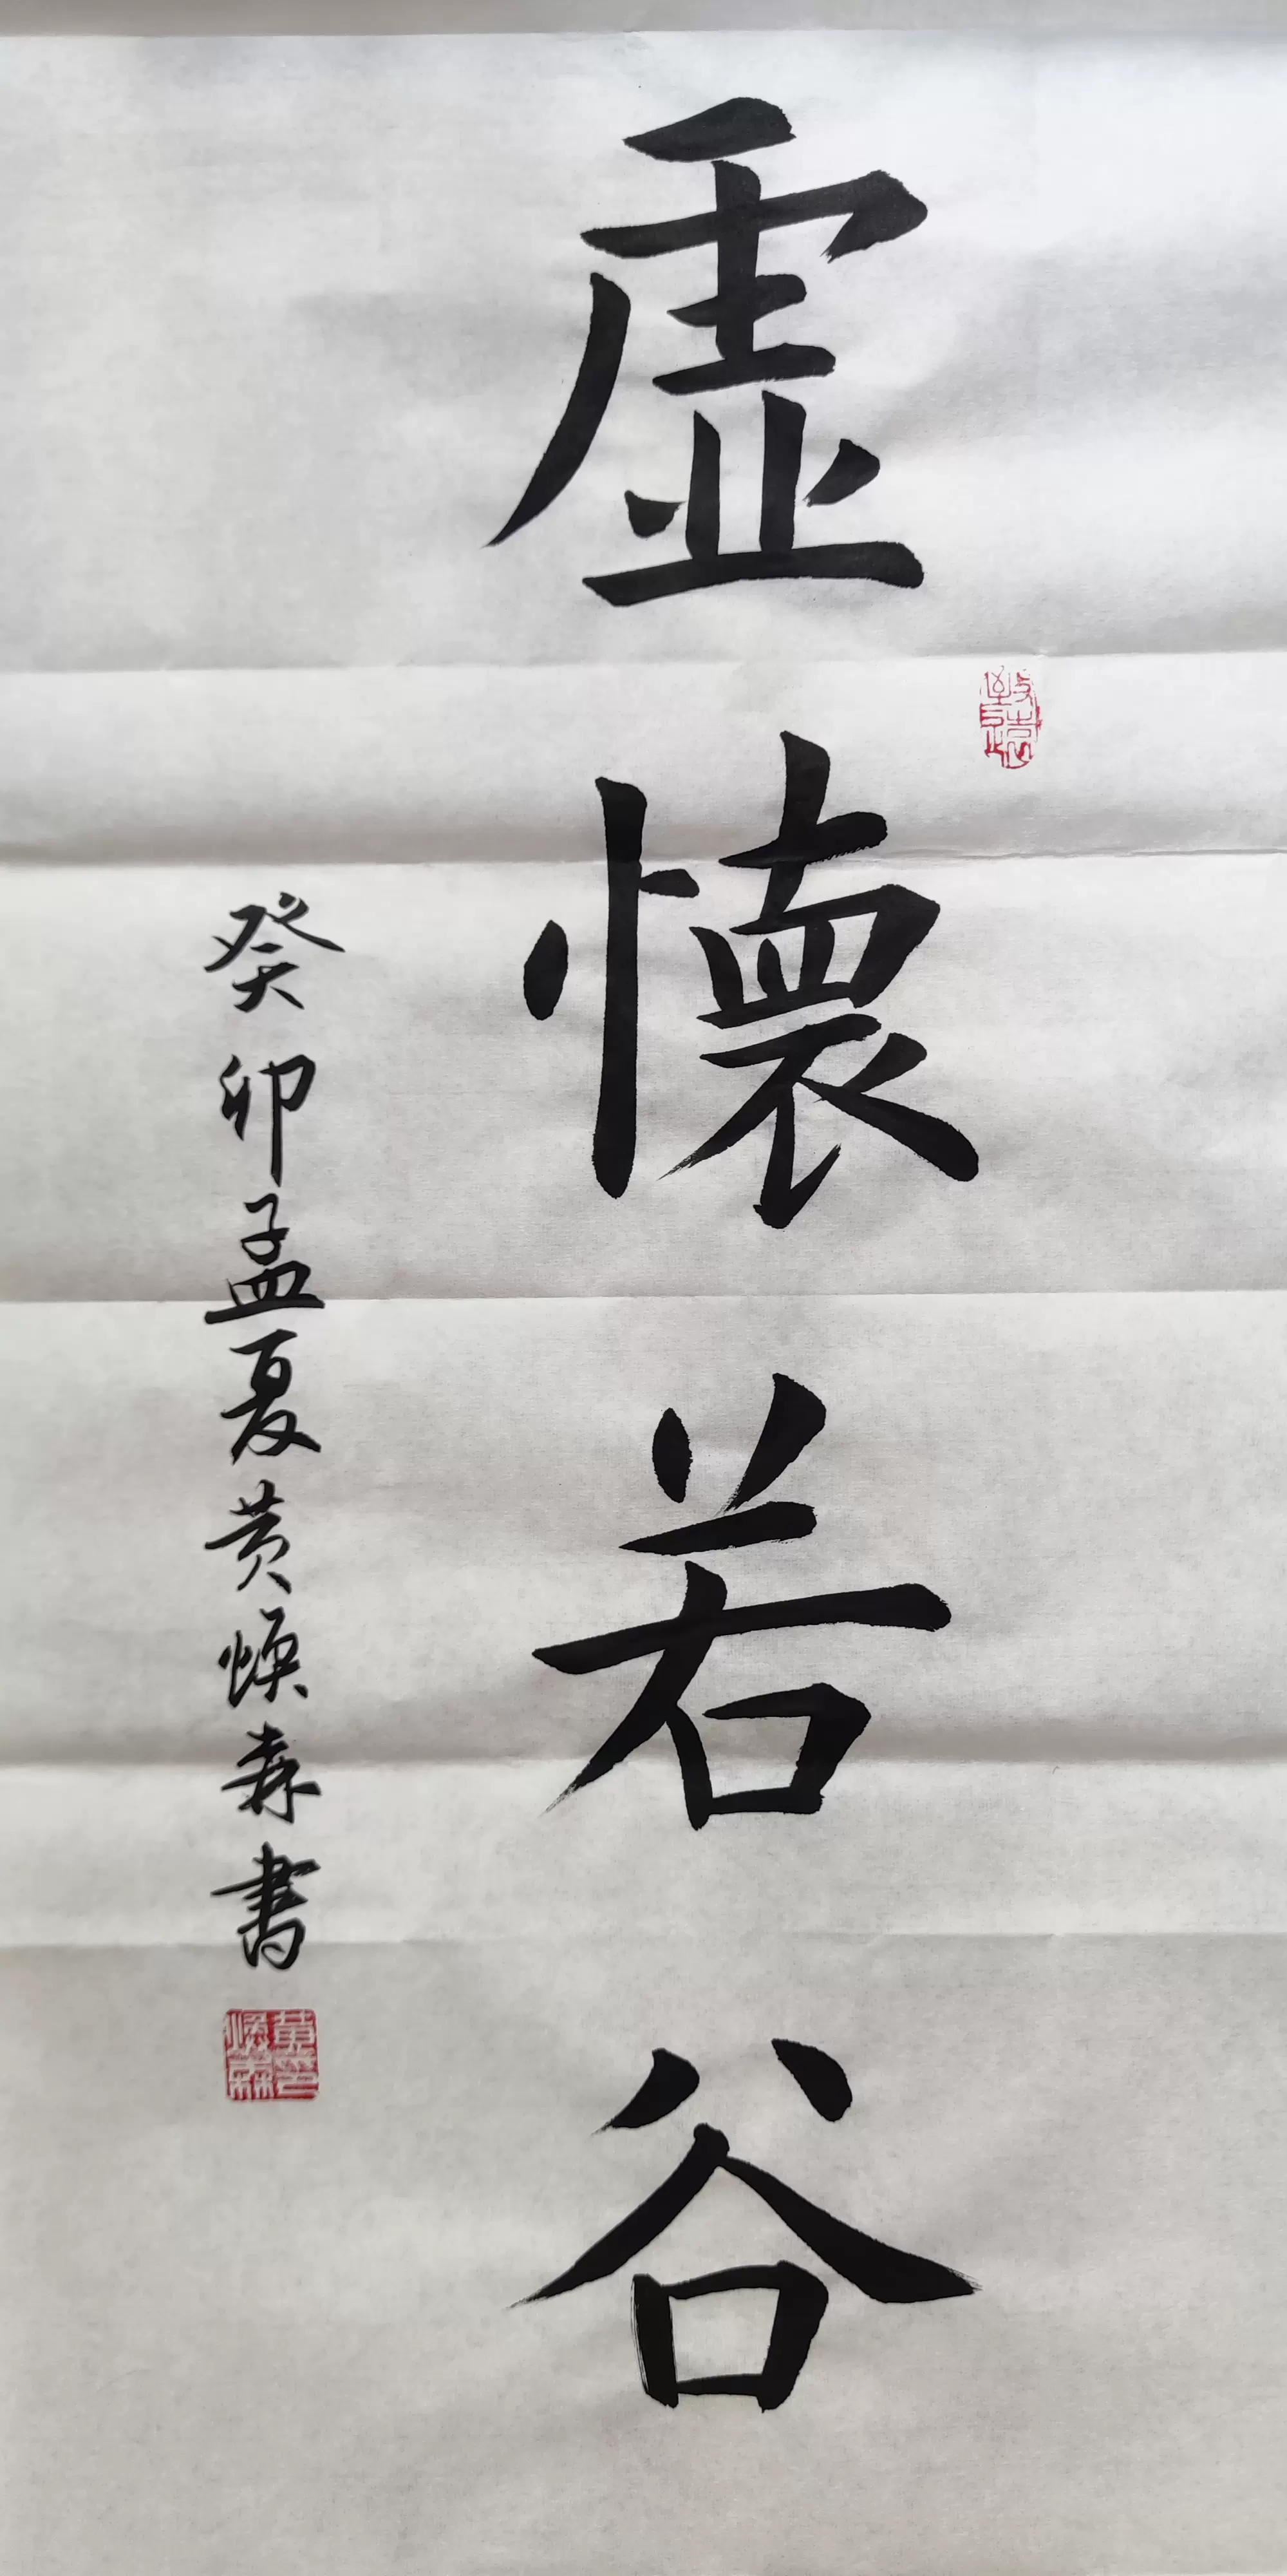 虛懷若谷
癸卯孟夏黄焕森書
黄焕森印